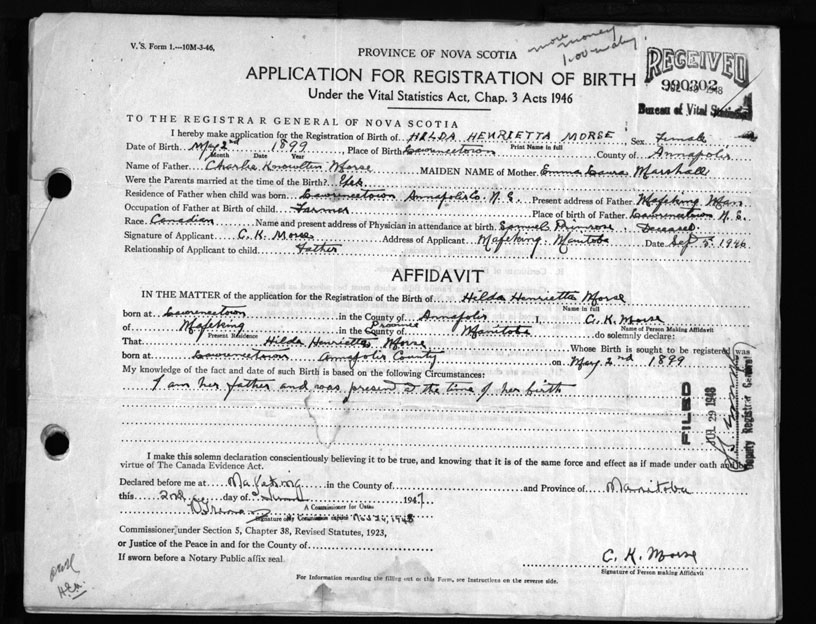 V.S. Form 1.—10M-3-46,
more money
PROVINCE OF NOVA SCOTIA
APPLICATION FOR REGISTRATION OF BIRTH
Under the Vital Statistics Act, Chap. 3 Acts 1946
RECEIVED
990302
1948
Bureau of Vital Statistics
TO THE REGISTRAR GENERAL OF NOVA SCOTIA
I hereby make application for the Registration of Birth of HILDA HENRIETTA MORSE, Sex Female
Print Name in full
Date of Birth May 2nd 1899 Place of Birth Lawrencetown County of Annapolis
Month Date Year
Name of Father Charlie Knowlton Morse MAIDEN NAME of Mother Emma Laura Marshall
Were the Parents married at the time of Birth? Yes
Residence of Father when child was born Lawrencetown Annapolis Co. N.S. Present address of Father Mafeking Man.
Occupation of Father at Birth of child Farmer Place of birth of Father Lawrencetown N.S.
Race Canadian Name and present address of Physician in attendance at birth Samuel Primrose. Deceased
Signature of Applicant C. K. Morse Address of Applicant Mafeking. Manitoba Date Sep 5. 1946
Relationship of Applicant to child Father
AFFIDAVIT
IN THE MATTER of the application for the Registration of the Birth of Hilda Henrietta Morse
Name in full
born at Lawrencetown in the County of Annapolis I, C. K. Morse
Name of Person Making Affidavit
of Mafeking in the County of Province Manitoba do solemnly declare:
Present Residence
That Hilda Henrietta Morse Whose Birth is sought to be registered was
born at Lawrencetown Annapolis County on May 2nd 1899
My knowledge of the fact and date of such Birth is based on the following Circumstances:
I am her father and was present at the time of her birth
FILED
JUL 29 1948
Deputy Registrar General
I make this solemn declaration conscientiously believing it to be true, and knowing that it is of the same force and effect as if made under oath and by
virtue of The Canada Evidence Act.
Declared before me at Mafeking in the County of and Province of Manitoba
this 2nd day of 1947
A Commissioner for Oaths
Signature My Commission expires 1948
Commissioner, under Section 5, Chapter 38, Revised Statutes, 1923,
or Justice of the Peace in and for the County of
If sworn before a Notary Public affix seal.
C. K. Morse
Signature of Person making Affidavit
For Information regarding the filling out of this Form, see Instructions on the reverse side.